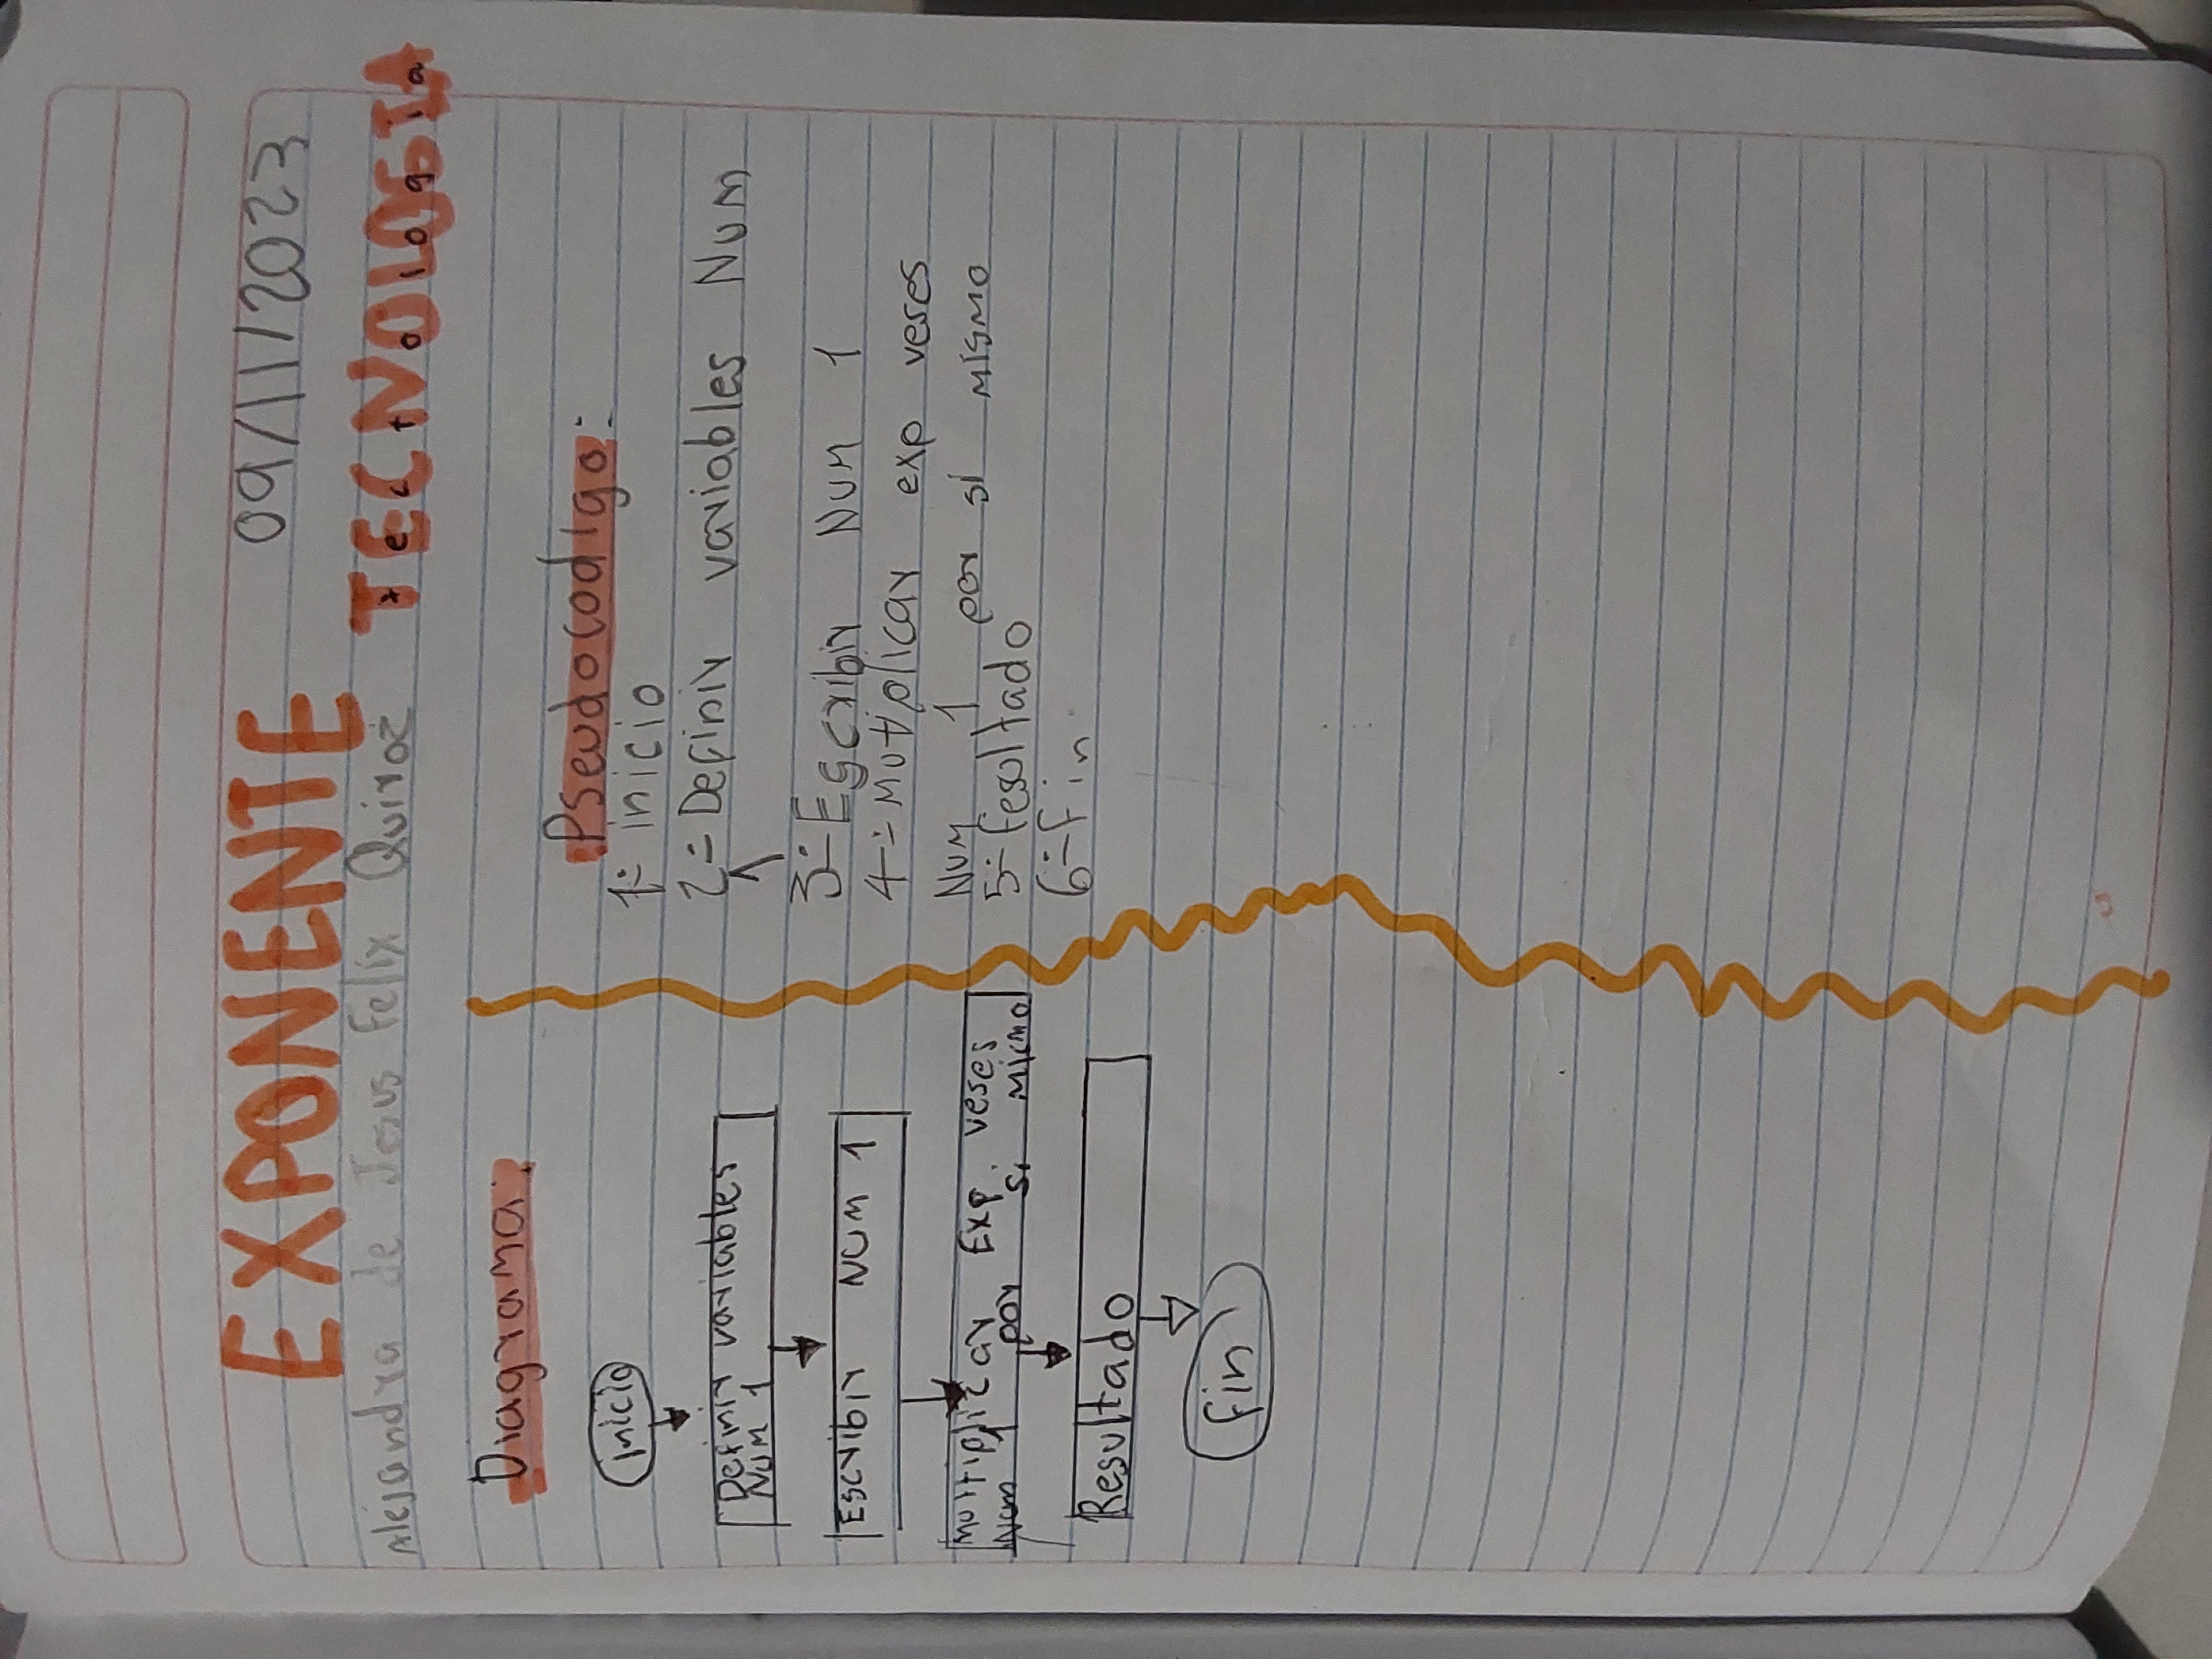 EXPONENTE 09/11/2023
Alejandra de Jesus Felix Quiroz TECNOLOGIA
Tecnologia
Diagrama:
Inicio
Definir variables
Num 1
Escribir NUM 1
Multiplicar Exp. veses
Num 1 por si micmo
Resultado
fin
Pseudocodigo:
1:- inicio
2:- Definir variables Num
1
3:- Escribir Num 1
4-:- Mutiplicar exp veses
Num 1 por si mismo
5:- resultado
6:- fin